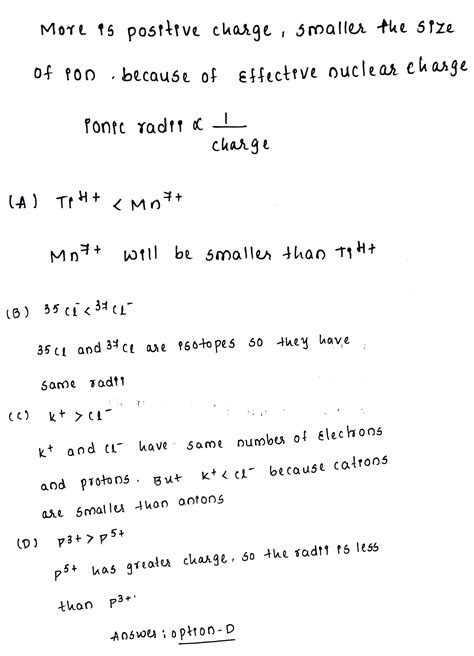 More is positive charge, smaller the size
of ion. because of Effective nuclear charge
Ionic radii ∝ 1/charge
(A) Ti⁴⁺ < Mn⁷⁺
Mn⁷⁺ will be smaller than Ti⁴⁺
(B) ³⁵Cl⁻ < ³⁷Cl⁻
35Cl and ³⁷Cl are isotopes so they have
same radii
(C) K⁺ > Cl⁻
K⁺ and Cl⁻ have same number of Electrons
and protons. But K⁺ < Cl⁻ because cations
are smaller than anions
(D) P³⁺ > P⁵⁺
P⁵⁺ has greater charge, so the radii is less
than P³⁺.
Answer: option-D